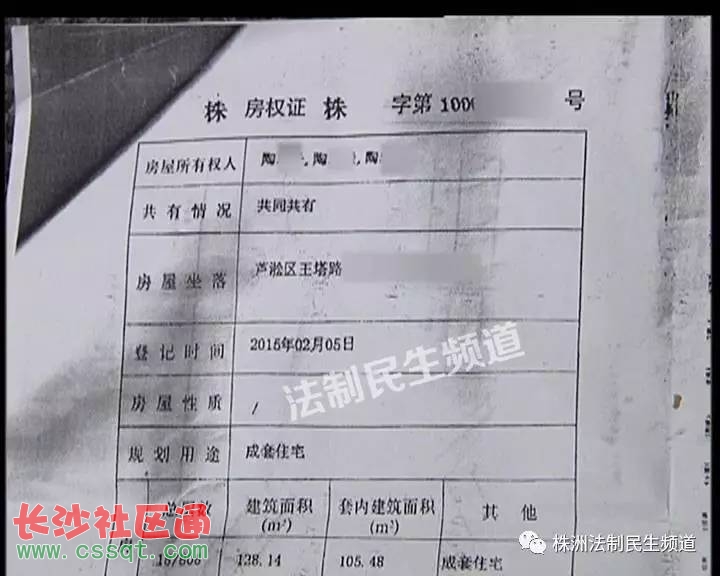 株 房权证 株 字第 100 号
房屋所有权人 陶 ,陶 ,陶
共有情况 共同共有
房屋坐落 芦淞区王塔路
登记时间 2015年02月05日
房屋性质 /
规划用途 成套住宅
总层数 建筑面积(m²) 套内建筑面积(m²) 其他
128.14 105.48 成套住宅
法制民生频道
长沙社区通
www.cssqt.com
株洲法制民生频道